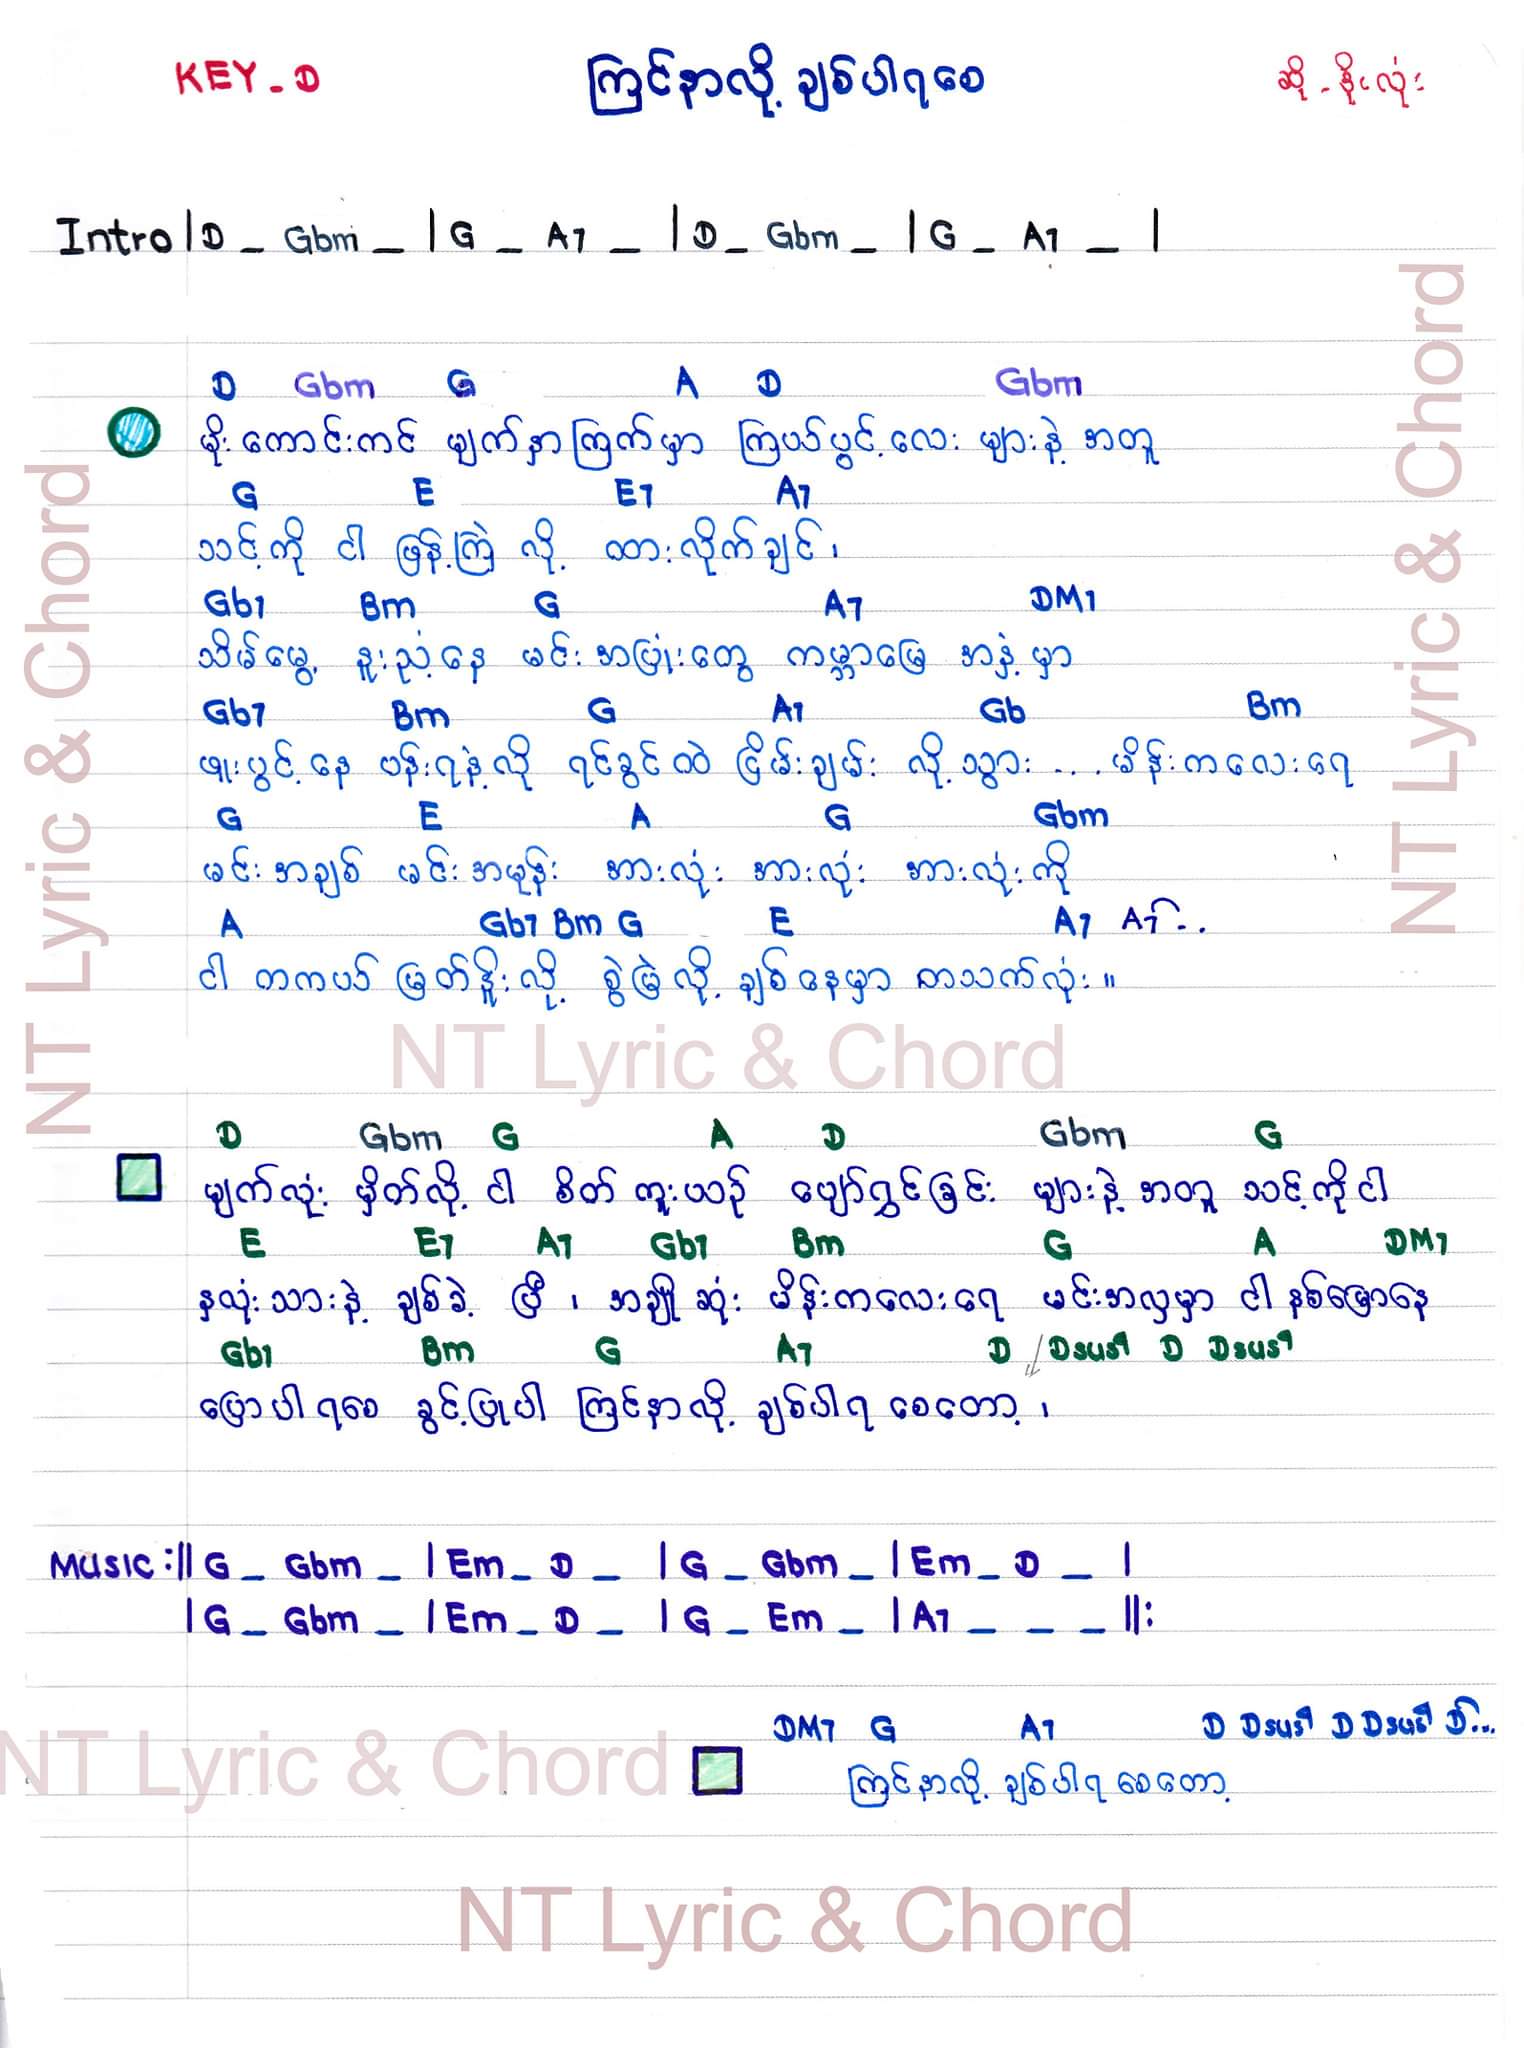 KEY_D ကြင်နာလို့ ချစ်ပါရစေ ဆို - နိုင်လုံး
Intro | D _ Gbm _ | G _ A7 _ | D _ Gbm _ | G _ A7 _ |
D Gbm G A D Gbm
မိုးကောင်းကင် မျက်နှာကြက်မှာ ကြယ်ပွင့်လေး များနဲ့ အတူ
G E E7 A7
သင့်ကို ငါ ဖြန့်ကြဲ လို့ ထားလိုက်ချင်၊
Gb7 Bm G A7 DM7
သိမ်မွေ့ နူးညံ့နေ မင်းအပြုံးတွေ ကမ္ဘာမြေ အနှံ့မှာ
Gb7 Bm G A7 Gb Bm
ဖူးပွင့်နေ ပန်းရနံ့လို ရင်ခွင်ထဲ ငြိမ်းချမ်း လို့သွား ... မိန်းကလေးရေ
G E A G Gbm
မင်းအချစ် မင်းအမုန်း အားလုံး အားလုံး အားလုံးကို
A Gb7 Bm G E A7 A7..
ငါ တကယ် မြတ်နိုးလို့ စွဲမြဲလို့ ချစ်နေမှာ တသက်လုံး။
D Gbm G A D Gbm G
မျက်လုံး မှိတ်လို့ ငါ စိတ်ကူးယဉ် ပျော်ရွှင်ခြင်း များနဲ့ အတူ သင့်ကိုငါ
E E7 A7 Gb7 Bm G A DM7
နှလုံးသားနဲ့ ချစ်ခဲ့ ပြီ၊ အချိုဆုံး မိန်းကလေးရေ မင်းအလှမှာ ငါ နစ်မြောနေ
Gb7 Bm G A7 D Dsus4 D Dsus4
ပြောပါရစေ ခွင့်ပြုပါ ကြင်နာလို့ ချစ်ပါရ စေတော့၊
MUSIC :|| G _ Gbm _ | Em _ D _ | G _ Gbm _ | Em _ D _ |
| G _ Gbm _ | Em _ D _ | G _ Em _ | A7 _ _ _ ||:
DM7 G A7 D Dsus4 D Dsus4 D...
ကြင်နာလို့ ချစ်ပါရ စေတော့
NT Lyric & Chord
NT Lyric & Chord
NT Lyric & Chord
NT Lyric & Chord
NT Lyric & Chord